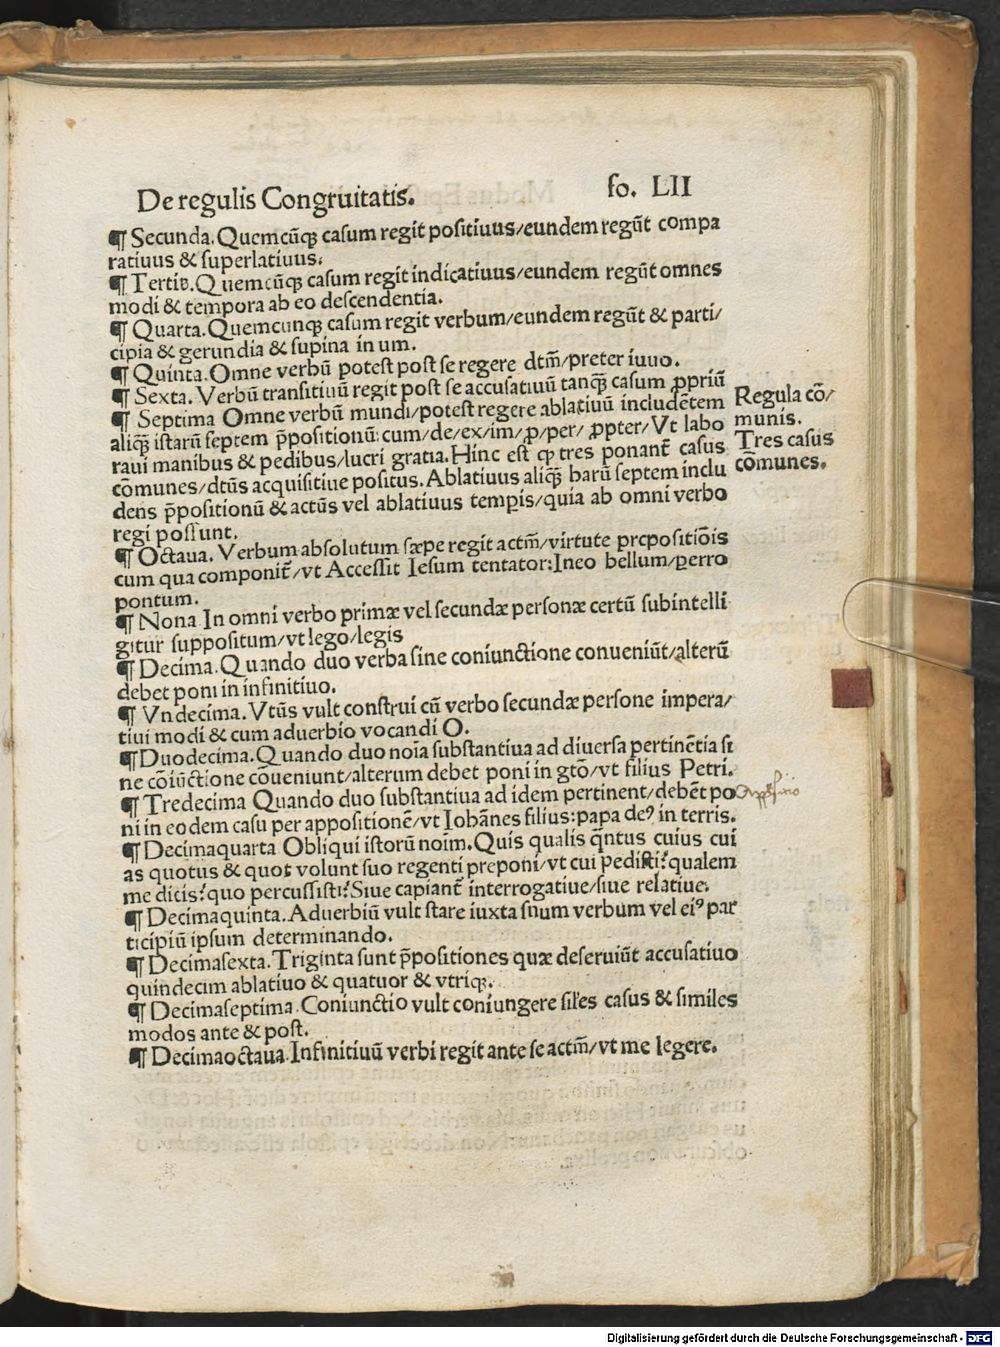 De regulis Congruitatis. fo. LII
¶ Secunda. Quemcūqꝫ casum regit positiuus/eundem regūt compa
ratiuus & superlatiuus.
¶ Tertia. Quemcūqꝫ casum regit indicatiuus/eundem regūt omnes
modi & tempora ab eo descendentia.
¶ Quarta. Quemcunqꝫ casum regit verbum/eundem regūt & parti/
cipia & gerundia & supina in um.
¶ Quinta. Omne verbū potest post se regere dtm̄/preter iuuo.
¶ Sexta. Verbū transitiuū regit post se accusatiuū tanqꝫ̄ casum ꝓpriū
¶ Septima Omne verbū mundi/potest regere ablatiuū includētem
aliqꝫ̄ istarū septem p̄positionū: cum/de/ex/im/ꝓ/per/ꝓpter/Vt labo
raui manibus & pedibus/lucri gratia. Hinc est ꝙ tres ponant̄ casus
cōmunes/dtūs acquisitiue positus. Ablatiuus aliqꝫ̄ harū septem inclu
dens p̄positionū & actūs vel ablatiuus temꝑis/quia ab omni verbo
regi possunt.
Regula cō/
munis.
Tres casus
cōmunes.
¶ Octaua. Verbum absolutum sæpe regit actm̄/virtute prepositiōis
cum qua componit̄/vt Accessit Iesum tentator: Ineo bellum/ꝑerro
pontum.
¶ Nona In omni verbo primæ vel secundæ personæ certū subintelli
gitur suppositum/vt lego/legis
¶ Decima. Quando duo verba sine coniunctione conueniūt/alterū
debet poni in infinitiuo.
¶ Vndecima. Vtūs vult construi cū verbo secundæ persone impera/
tiui modi & cum aduerbio vocandi O.
¶ Duodecima. Quando duo noīa substantiua ad diuersa pertinētia si
ne cōiūctione cōueniunt/alterum debet poni in gtō/vt filius Petri.
¶ Tredecima Quando duo substantiua ad idem pertinent/debēt po
ni in eodem casu per appositionē/vt Iohānes filius: papa deꝰ in terris.
¶ Decimaquarta Obliqui istorū noīm. Quis qualis q̄ntus cuius cui
as quotus & quot volunt suo regenti preponi/vt cui pedisti? qualem
me dicis? quo percussisti? Siue capiant̄ interrogatiue/siue relatiue.
¶ Decimaquinta. Aduerbiū vult stare iuxta suum verbum vel eiꝰ par
ticipiū ipsum determinando.
¶ Decimasexta. Triginta sunt p̄positiones quæ deseruiūt accusatiuo
quindecim ablatiuo & quatuor & vtriqꝫ.
¶ Decimaseptima. Coniunctio vult coniungere siłes casus & similes
modos ante & post.
¶ Decimaoctaua. Infinitiuū verbi regit ante se actm̄/vt me legere.
Digitalisierung gefördert durch die Deutsche Forschungsgemeinschaft - DFG